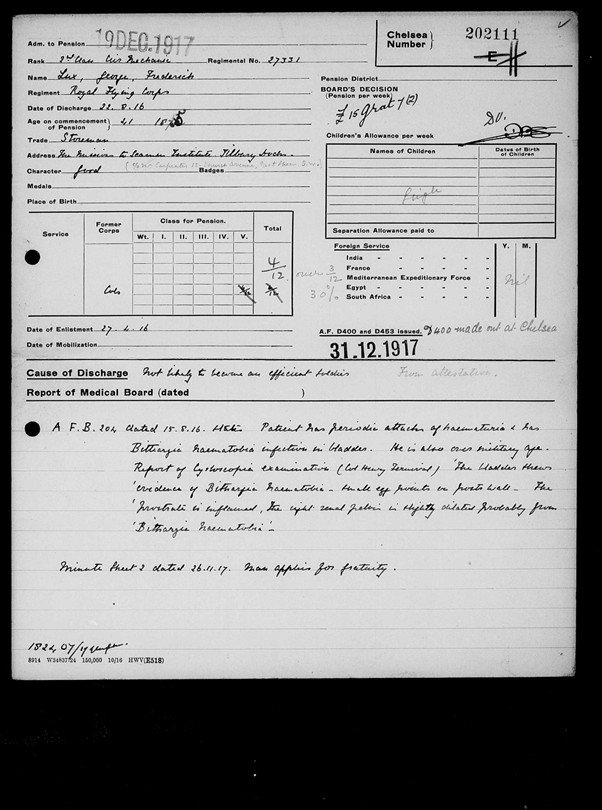 Adm. to Pension 19 DEC. 1917
Chelsea Number } 202111
E H
Rank 2nd Class Air Mechanic Regimental No. 27331
Name Lux, George, Frederick
Regiment Royal Flying Corps
Date of Discharge 22.8.16
Age on commencement of Pension } 41
Trade Storeman
Address The Missions to Seamen Institute Tilbury Docks.
Character Good Badges
Medals
Place of Birth
Pension District
BOARD'S DECISION
(Pension per week)
£15 Grat 7(2)
Children's Allowance per week
Names of Children
Dates of Birth of Children
Single
Separation Allowance paid to
Service
Former Corps
Class for Pension.
Wt. I. II. III. IV. V.
Total
4/12
over 3/12
30%
Foreign Service Y. M.
India
France
Mediterranean Expeditionary Force
Egypt
South Africa
Nil
Date of Enlistment 27.4.16
Date of Mobilization
A.F. D400 and D453 issued. D400 made out at Chelsea
31.12.1917
Cause of Discharge Not likely to become an efficient soldier From attestation.
Report of Medical Board (dated )
A.F.B. 204 dated 15.8.16. Patient has periodic attacks of haematuria & has
Bilharzia Haematobia infection in bladder. He is also over military age.
Report of Cystoscopic examination (Col Henry ) 'The bladder shews
'evidence of Bilharzia Haematobia - small egg points on posterior wall - The
'prostrate is inflamed, the right renal pelvis is slightly dilated probably from
'Bilharzia Haematobia'-
Minute Sheet 2 dated 26.11.17. Man applies for gratuity.
8914 W34837/24 150,000 10/16 HWV(E518)